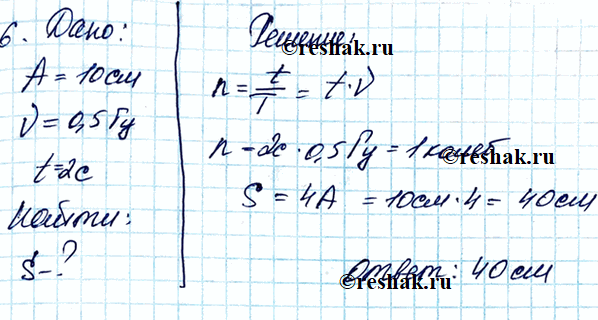 6. Дано:
A = 10см
ν = 0,5Гц
t=2с
Найти:
S-?
Решение:
©reshak.ru
n = t/T = t·ν
n - 2с · 0,5Гц = 1колеб
©reshak.ru
S = 4A = 10см·4 = 40см
Ответ: 40см
©reshak.ru